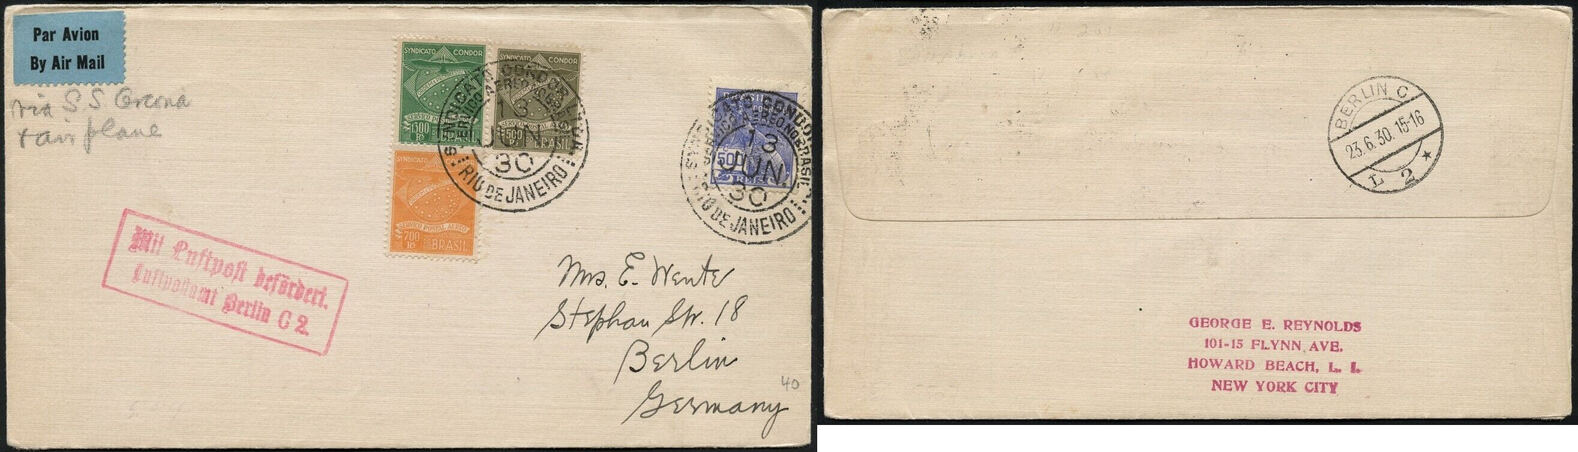 Par Avion
By Air Mail
via S.S.
+ airplane
SYNDICATO CONDOR
SERVIÇO POSTAL AEREO
1300 Rs BRASIL
SYNDICATO CONDOR
SERVIÇO POSTAL AEREO
500 Rs BRASIL
SERVIÇO POSTAL AEREO
700 Rs BRASIL
SYNDICATO CONDOR
SERVIÇO AEREO NO BRASIL
13
JUN.
30
RIO DE JANEIRO
BRASIL
CORREIO
500
REIS
SYNDICATO CONDOR
SERVIÇO AEREO NO BRASIL
13
JUN.
30
RIO DE JANEIRO
Mit Luftpost befördert.
Luftpostamt Berlin C 2.
Mrs. E. Wente
Stephan Str. 18
Berlin
Germany
40
BERLIN C
23.6.30.15-16
L 2 *
GEORGE E. REYNOLDS
101-15 FLYNN AVE.
HOWARD BEACH, L. I.
NEW YORK CITY